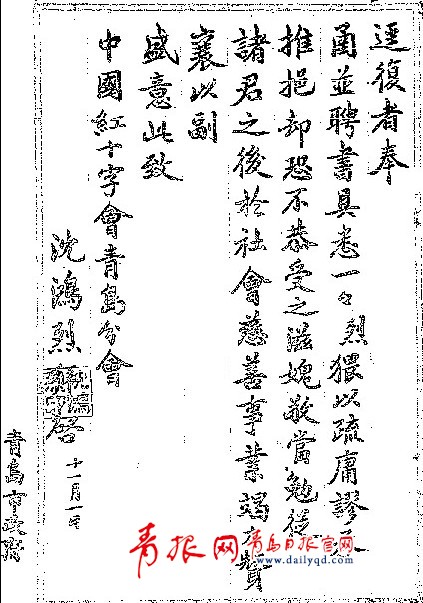 逕復者奉
函並聘書具悉一々烈猥以疏庸謬承
推挹却恐不恭受之滋媿敬當勉從
諸君之後於社會慈善事業竭力贊
襄以副
盛意此致
中國紅十字會青島分會
沈鴻烈啓
十一月一日
青島市政府
青报网
青岛日报官网
www.dailyqd.com